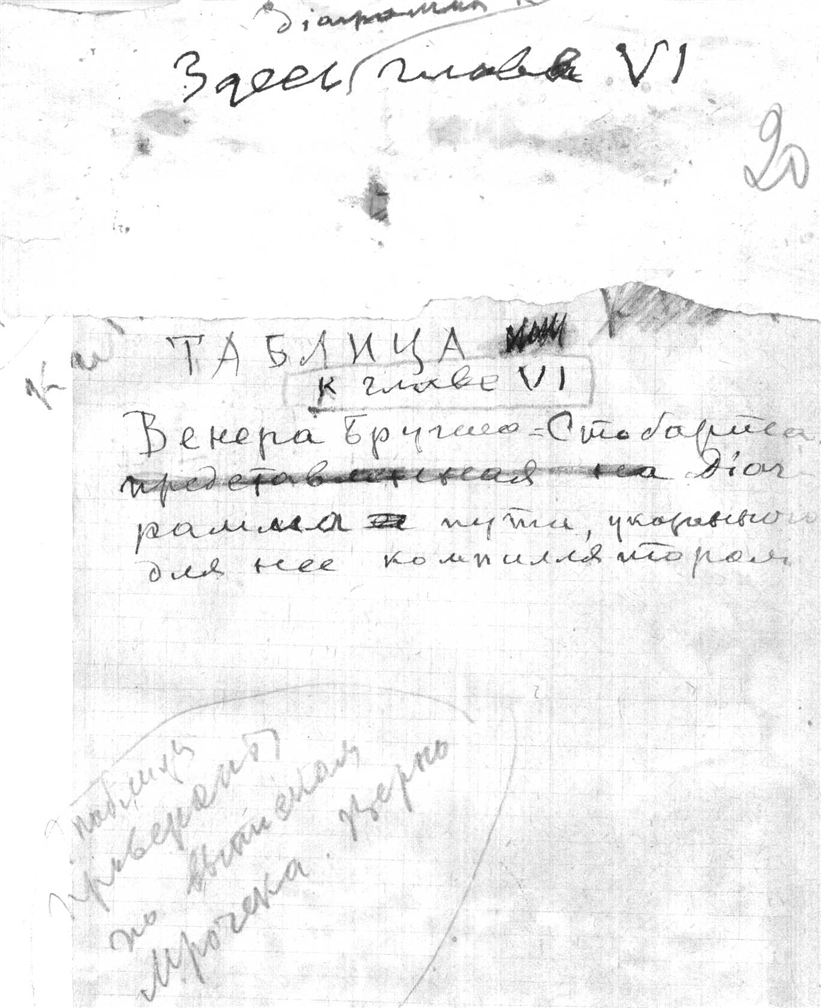 Дiаграмма к
Здесь глава VI
20
ТАБЛИЦА
к главе VI
Венера Бругша=Стобарта,
представленная на Diаг
рамма пути, указанного
для нее компиллятором
таблицы
проверены
по выпискам
Мрочека. Верно